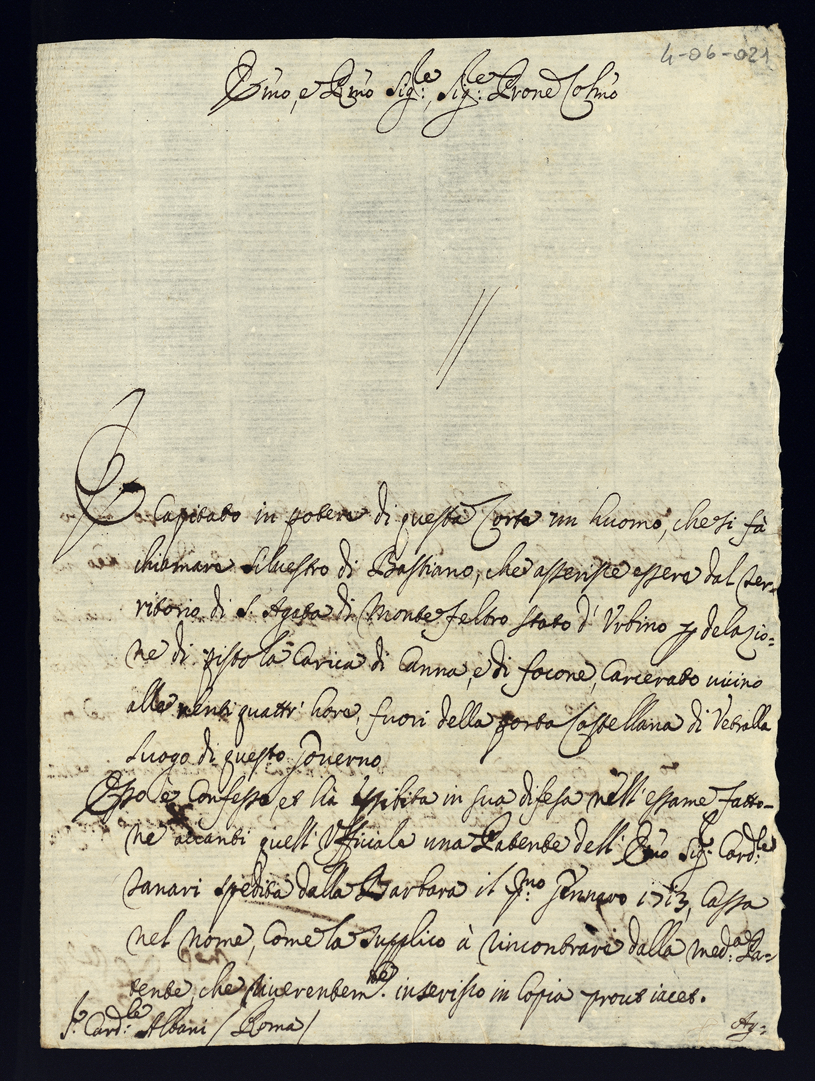 4-06-021
Em̃o, e Rm̃o Sig:le, Sig:le Prone Colm̃o
//
È Capitato in potere di questa Corte un huomo, che si fà
chiamare Siluestro di Bastiano, che asserisce essere dal ter-
ritorio di S. Agata di Monte feltro stato d' Vrbino p delazio=
ne di pistola Carica di Canna, e di focone, Carcerato uicino
alle uenti quattr' hore, fuori della porta Castellana di Vetralla
luogo di questo Gouerno
Esso è Confesso, et hà essibita in sua difesa nell' essame fatto-
ne auanti quell' Vfficiale una Patente dell' Em̃o Sig:r Card:le
Tanari spedita dalla Barbara il p:mo Gennaro 1713, Cassa
nel nome, Come la supplico à rincontrare dalla med:a Pa=
tente, che riuerentem:te inserisco in Copia prout iacet.
S:r Card:le Albani / Roma /
Ag=